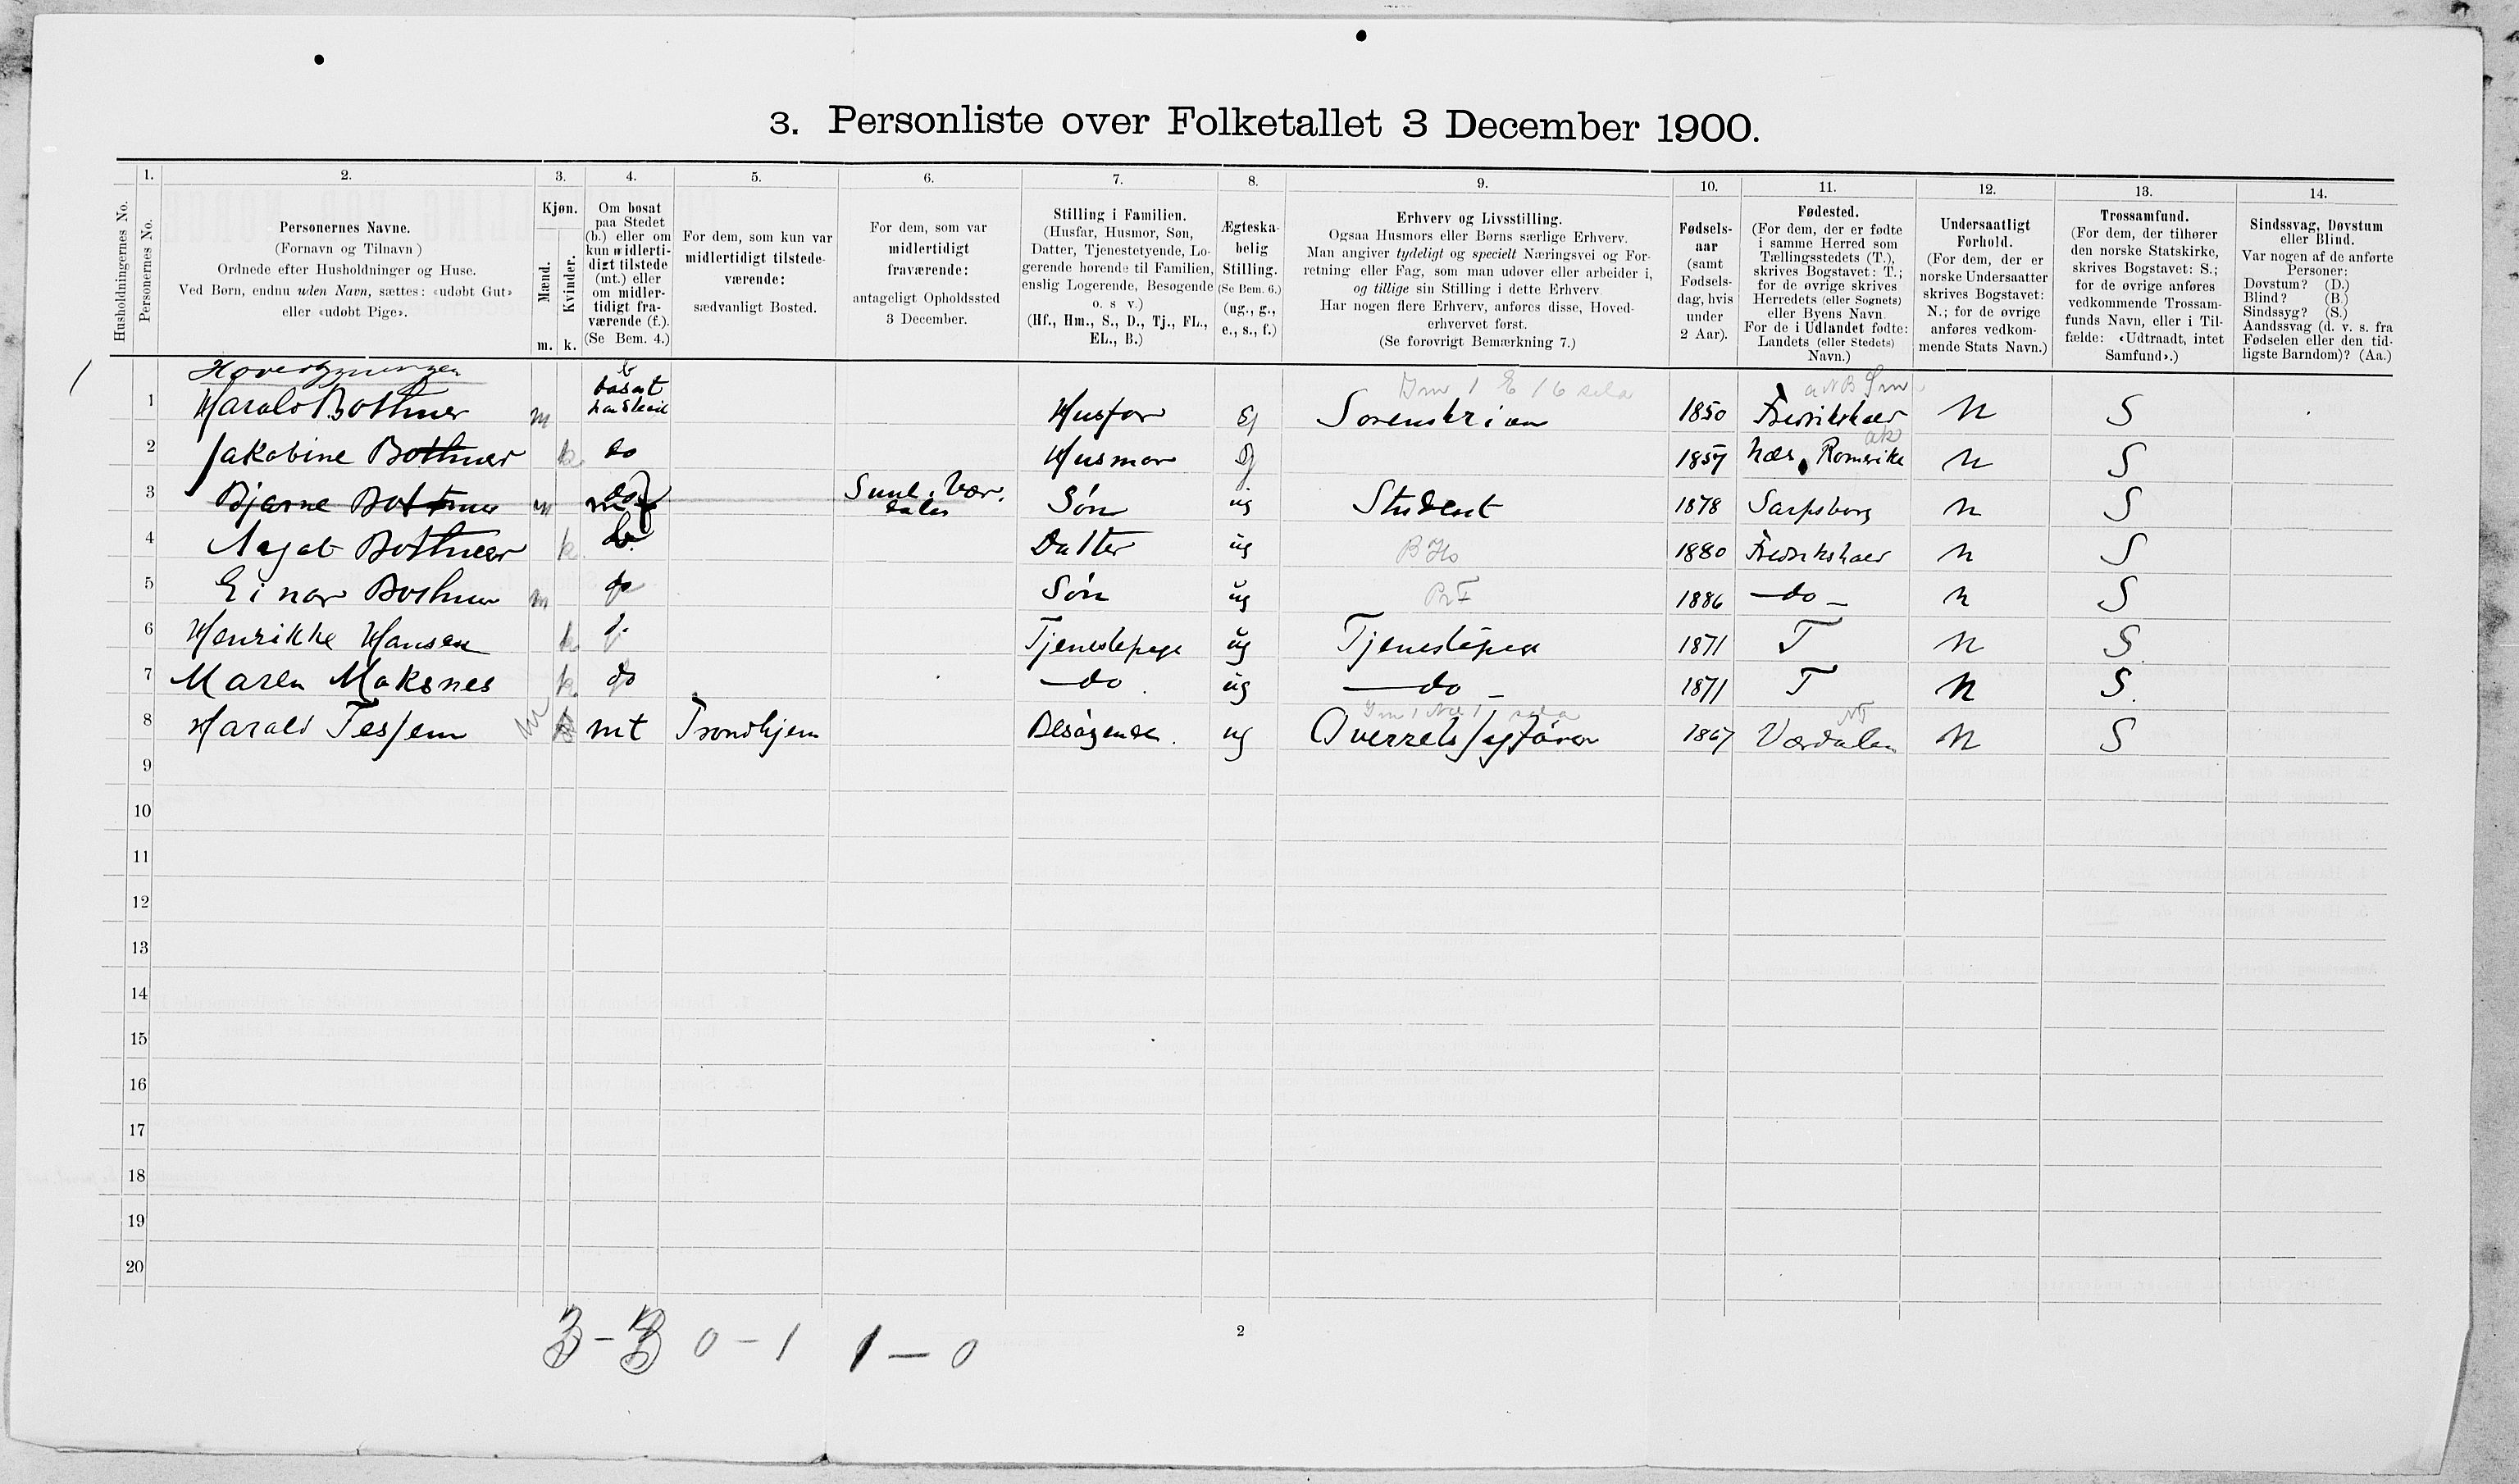 3. Personliste over Folketallet 3 December 1900.
Husholdningernes No.
1. Personernes No.
2. Personernes Navne.
(Fornavn og Tilnavn)
Ordnede efter Husholdninger og Huse.
Ved Børn, endnu uden Navn, sættes: «udøbt Gut»
eller «udøbt Pige».
3. Kjøn.
Mænd. Kvinder.
m. k.
4. Om bosat
paa Stedet
(b.) eller om
kun midlerti-
digt tilstede
(mt.) eller
om midler-
tidigt fra-
værende (f.).
(Se Bem. 4.)
5. For dem, som kun var
midlertidigt tilstede-
værende:
sædvanligt Bosted.
6. For dem, som var
midlertidigt
fraværende:
antageligt Opholdssted
3 December.
7. Stilling i Familien.
(Husfar, Husmor, Søn,
Datter, Tjenestetyende, Lo-
gerende hørende til Familien,
enslig Logerende, Besøgende
o. s v.)
(Hf., Hm., S., D., Tj., FL.,
EL., B.)
8. Ægteska-
belig
Stilling.
(Se Bem. 6.)
(ug., g.,
e., s., f.)
9. Erhverv og Livsstilling.
Ogsaa Husmors eller Børns særlige Erhverv.
Man angiver tydeligt og specielt Næringsvei og For-
retning eller Fag, som man udøver eller arbeider i,
og tillige sin Stilling i dette Erhverv.
Har nogen flere Erhverv, anføres disse, Hoved-
erhvervet først.
(Se forøvrigt Bemærkning 7.)
10. Fødsels-
aar
(samt
Fødsels-
dag, hvis
under
2 Aar).
11. Fødested.
(For dem, der er fødte
i samme Herred som
Tællingsstedets (T.),
skrives Bogstavet: T.;
for de øvrige skrives
Herredets (eller Sognets)
eller Byens Navn.
For de i Udlandet fødte:
Landets (eller Stedets)
Navn.)
12. Undersaatligt
Forhold.
(For dem, der er
norske Undersaatter
skrives Bogstavet:
N.; for de øvrige
anføres vedkom-
mende Stats Navn.)
13. Trossamfund.
(For dem, der tilhører
den norske Statskirke,
skrives Bogstavet: S.;
for de øvrige anføres
vedkommende Trossam-
funds Navn, eller i Til-
fælde: «Udtraadt, intet
Samfund».)
14. Sindssvag, Døvstum
eller Blind.
Var nogen af de anførte
Personer:
Døvstum? (D.)
Blind? (B.)
Sindssyg? (S.)
Aandssvag (d. v. s. fra
Fødselen eller den tid-
ligste Barndom)? (Aa.)
Hovedbygningen
1 Harald Bothner m b bosat Husfar g Sorenskriver 1850 Fredrikshald N S
2 Jakobine Bothner k do Husmor g 1857 Næs, Romerike N S
3 Bjarne Bothner m f Sund. Vær. dalen Søn ug Student 1878 Sarpsborg N S
4 Aagot Bothner k do Datter ug 1880 Fredrikshald N S
5 Einar Bothner m do Søn ug 1886 — do — N S
6 Henrikke Hansen k do Tjenestepige ug Tjenestepige 1871 T N S
7 Maren Moksnes k. do — do ug — do — 1871 T N S.
8 Harald Tessem m mt Trondhjem Besøgende. ug Overretssagfører 1867 Værdalen N S
9
10
11
12
13
14
15
16
17
18
19
20
3 – 3 0 – 1 1 – 0
2